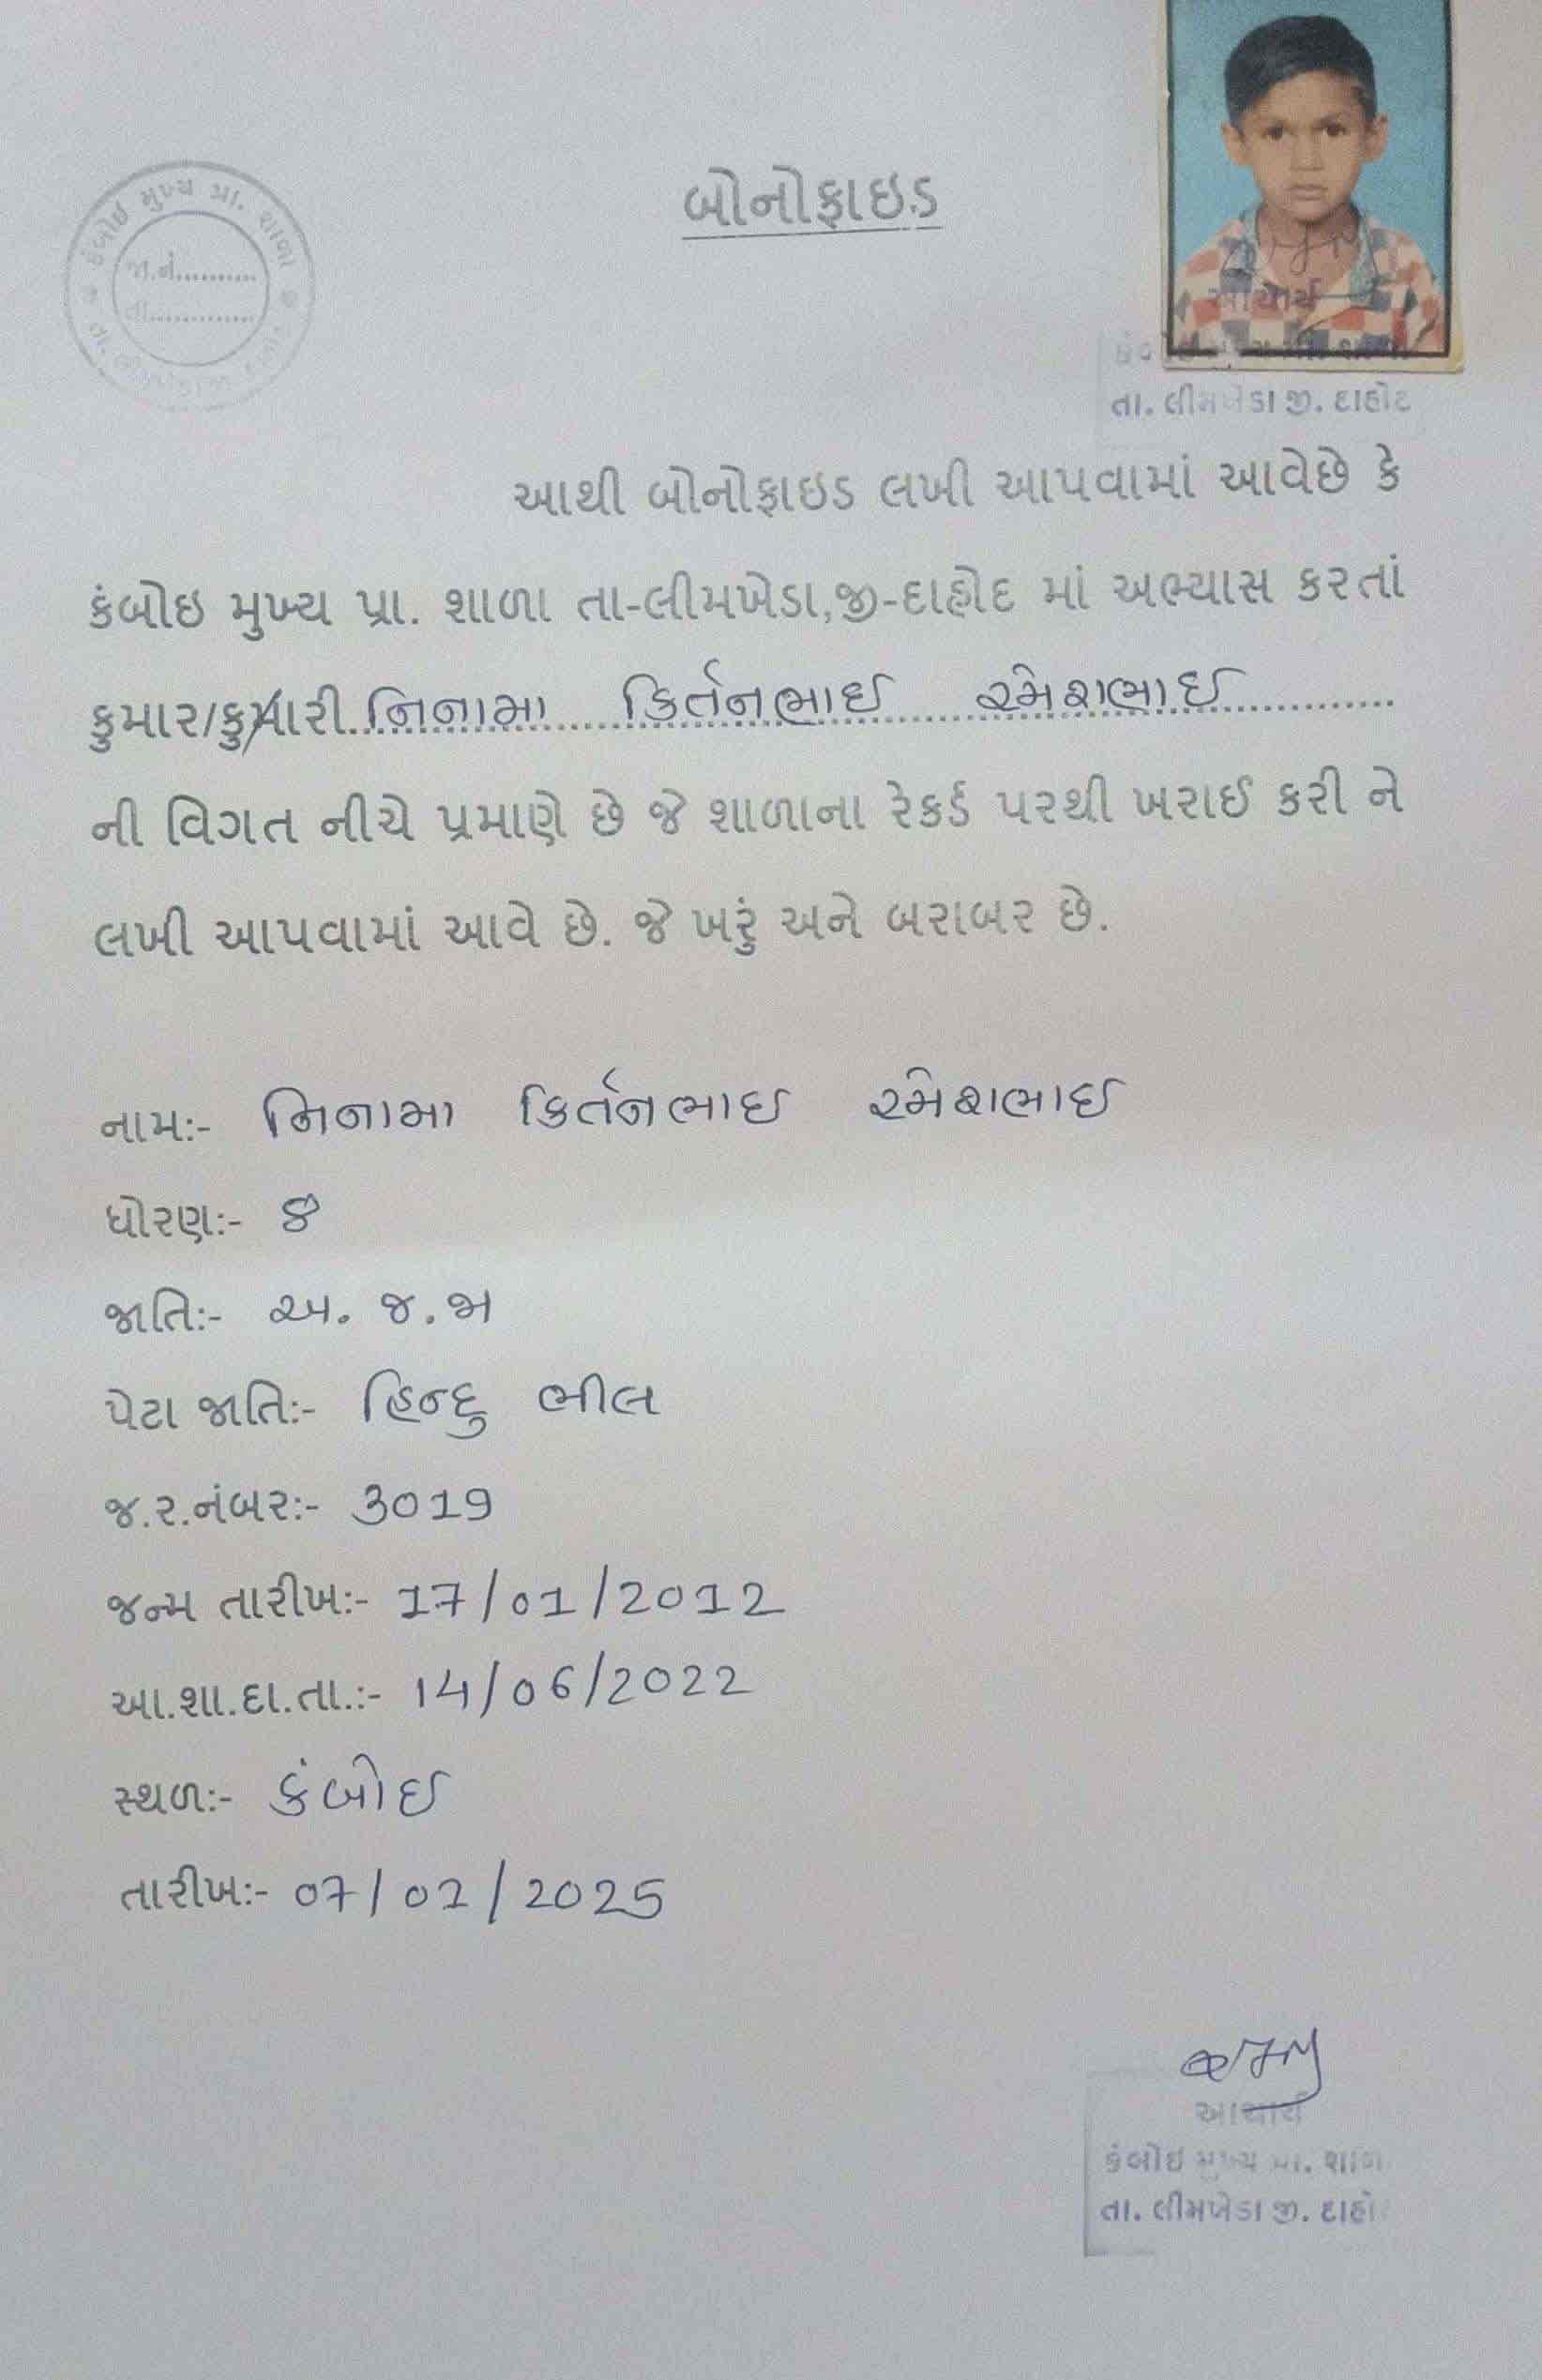 બોનોફાઇડ
કંબોઇ મુખ્ય પ્રા. શાળા
જા.નં..........
તા..............
આચાર્ય
તા. લીમખેડા જી. દાહોદ
આથી બોનોફાઇડ લખી આપવામાં આવેછે કે
કંબોઇ મુખ્ય પ્રા. શાળા તા-લીમખેડા,જી-દાહોદ માં અભ્યાસ કરતાં
કુમાર/કુમારી નિનામા કિર્તનભાઈ રમેશભાઈ
ની વિગત નીચે પ્રમાણે છે જે શાળાના રેકર્ડ પરથી ખરાઈ કરી ને
લખી આપવામાં આવે છે. જે ખરું અને બરાબર છે.
નામઃ- નિનામા કિર્તનભાઈ રમેશભાઈ
ધોરણઃ- ૪
જાતિઃ- અ. જ. જા
પેટા જાતિઃ- હિન્દુ ભીલ
જ.ર.નંબરઃ- 3019
જન્મ તારીખઃ- 17/01/2012
આ.શા.દા.તા.:- 14/06/2022
સ્થળઃ- કંબોઈ
તારીખઃ- 07/02/2025
આચાર્ય
કંબોઇ મુખ્ય પ્રા. શાળ
તા. લીમખેડા જી. દાહો